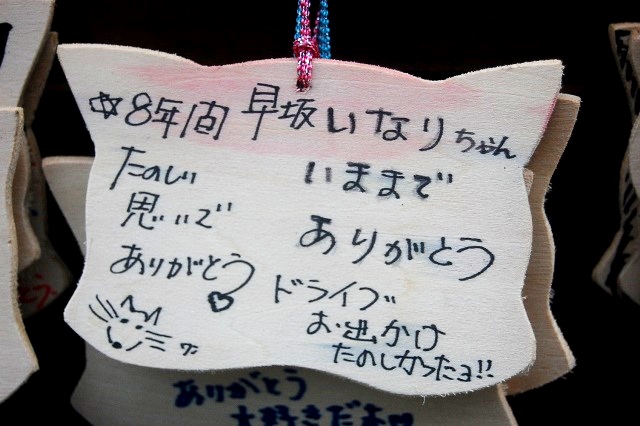 ☆8年間 早坂いなりちゃん
たのしい
思いで
ありがとう♡
いままで
ありがとう
ドライブ
お出かけ
たのしかったヨ!!
ワン
ありがとう
大好きだよ